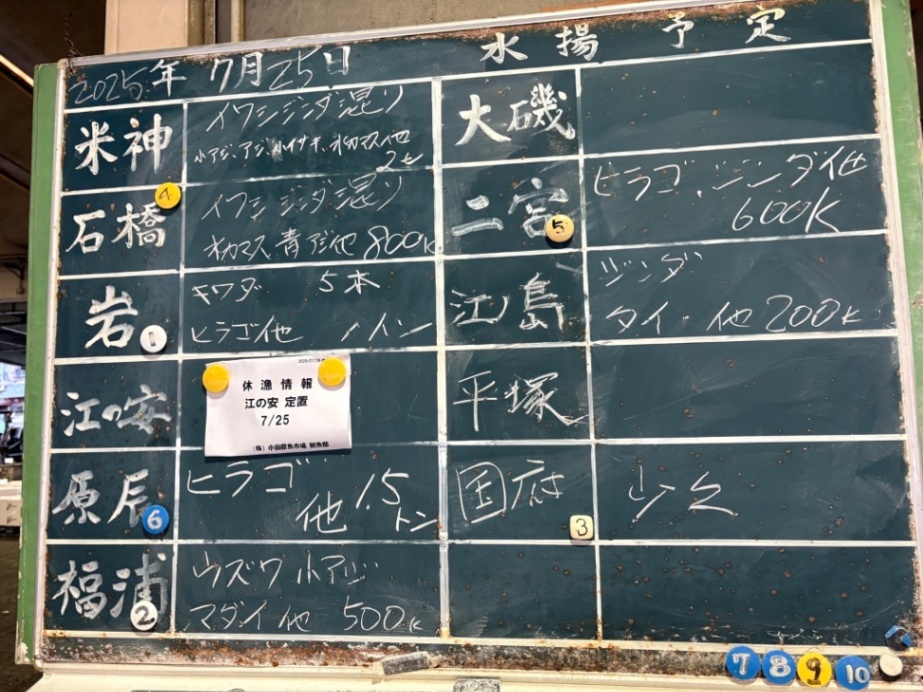 2025年 7月25日 水揚予定
米神
イワシジンダ混り
小アジ、アジ、小イサキ、オカマス他
石橋
4
イワシ ジンダ混り
オカマス、青アジ他 800K
岩
1
キワダ 5本
ヒラゴ他 トン
江の安
休漁情報
江の安 定置
7/25
(株)小田原魚市場 鮮魚部
原辰
6
ヒラゴ
他 1.5トン
福浦
2
ウズワ 小アジ
マダイ他 500K
大磯
二宮
5
ヒラゴ、ジンダ他
600K
江ノ島
ジンダ
タイ、他 200K
平塚
国府
3
少々
7 8 9 10